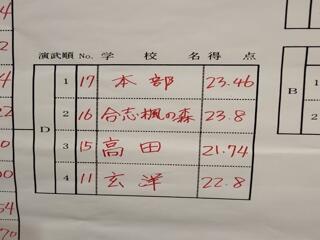 演武順 No. 学校名 得点
D
1 17 本部 23.46
2 16 合志楓の森 23.8
3 15 高田 21.74
4 11 玄洋 22.8
B
1
2